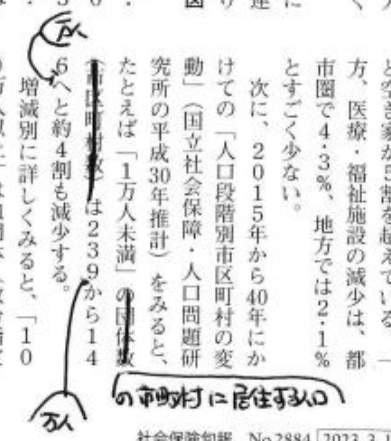 方、医療・福祉施設の減少は、都
市圏で4・3%、地方では2・1%
とすごく少ない。
次に、2015年から40年にか
けての「人口段階別市区町村の変
動」(国立社会保障・人口問題研
究所の平成30年推計)をみると、
たとえば「1万人未満」の団体数
(市区町村数)は239から14
6へと約4割も減少する。
増減別に詳しくみると、「10
万人
の市町村に居住する人口
万人
社会保険旬報 No.2884 2023.3.1